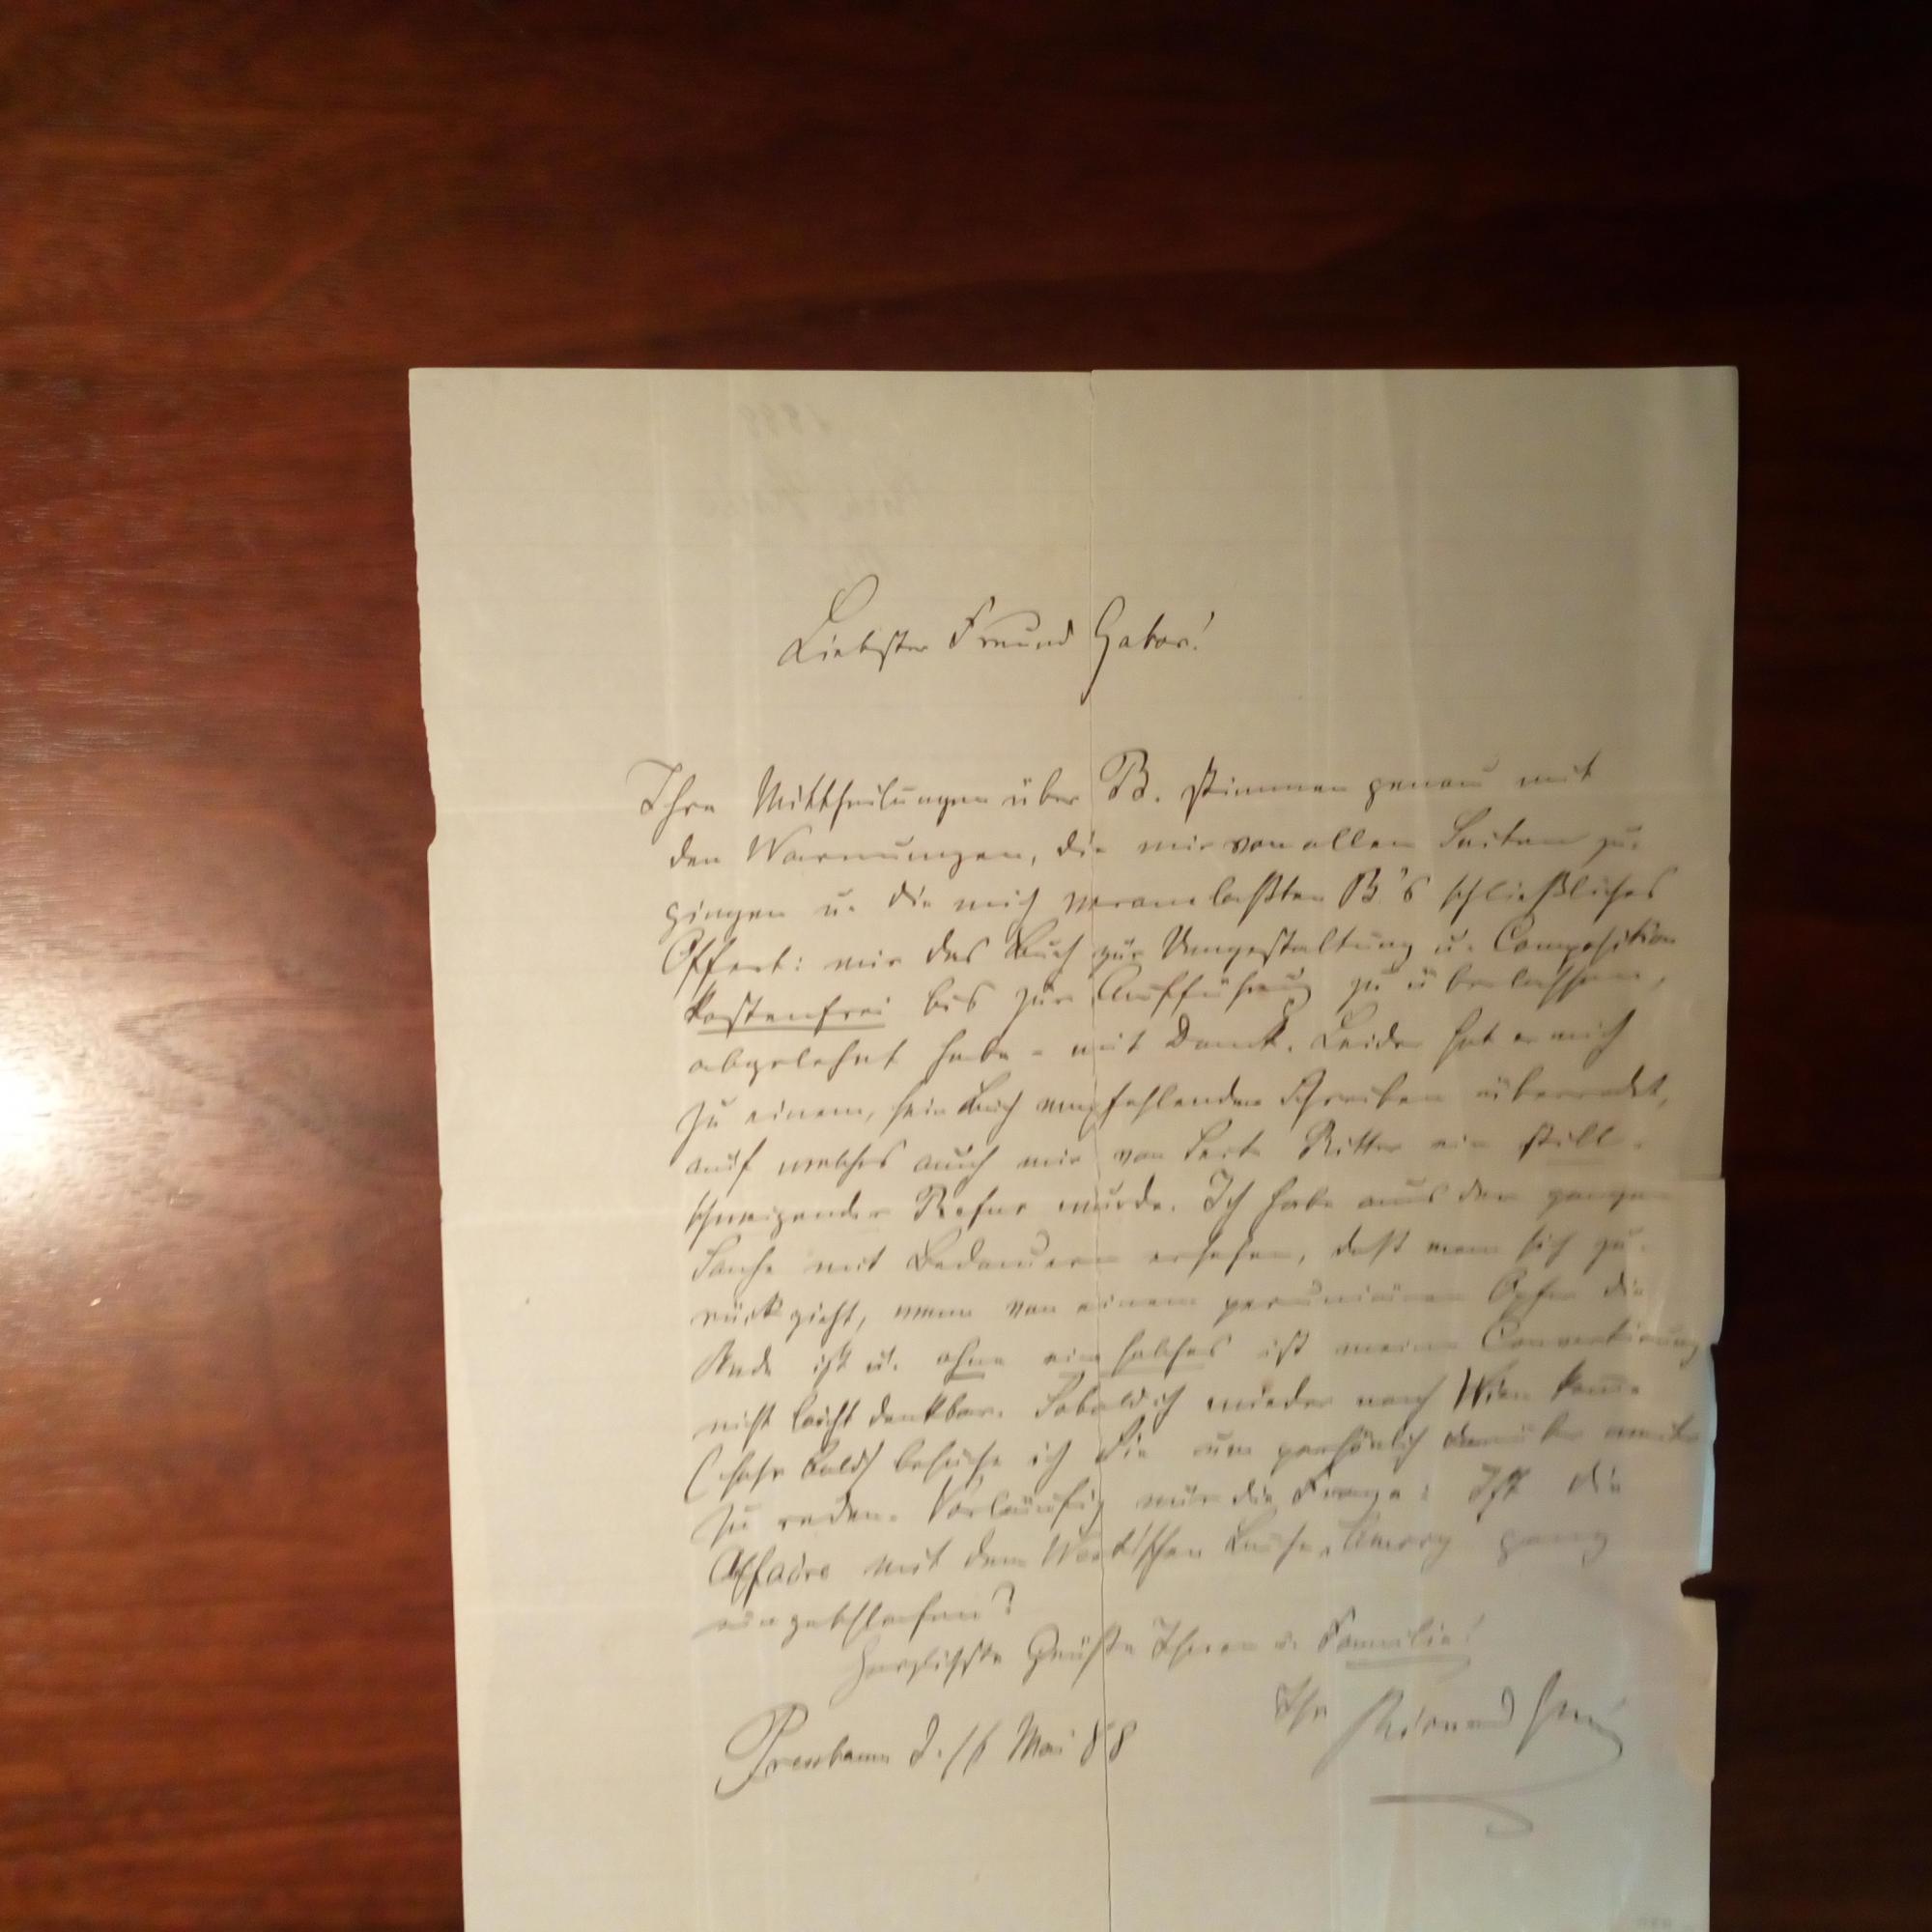 Liebster Freund Gabor!
Ihre Mittheilungen über B. stimmen genau mit
den Warnungen, die mir von allen Seiten zu-
gingen u. die mich veranlaßten B.'s schließliches
Offert: mir das Buch zur Umgestaltung u. Composition
kostenfrei bis zur Aufführung zu überlassen,
abgelehnt habe - mit Dank. Leider hat er mich
zu einem, sein Buch empfehlenden Schreiben überredet,
auf welches auch mir von Seite Ritter ein still-
schweigender Refus wurde. Ich habe aus der ganzen
Sache mit Bedauern ersehen, daß man sich zu-
rückzieht, wenn von einem pecuniären Opfer die
Rede ist u. ohne ein solches ist meine
nicht leicht denkbar. Sobald ich wieder nach Wien komme
(sehr bald) besuche ich Sie um persönlich darüber weiter
zu reden. Vorläufig nur die Frage: Ist die
Affaire mit dem ganz
eingeschlafen?
Herzlichste Grüße Ihnen u. Familie!
Ihr Richard
Pressbaum d. 16 Mai 88